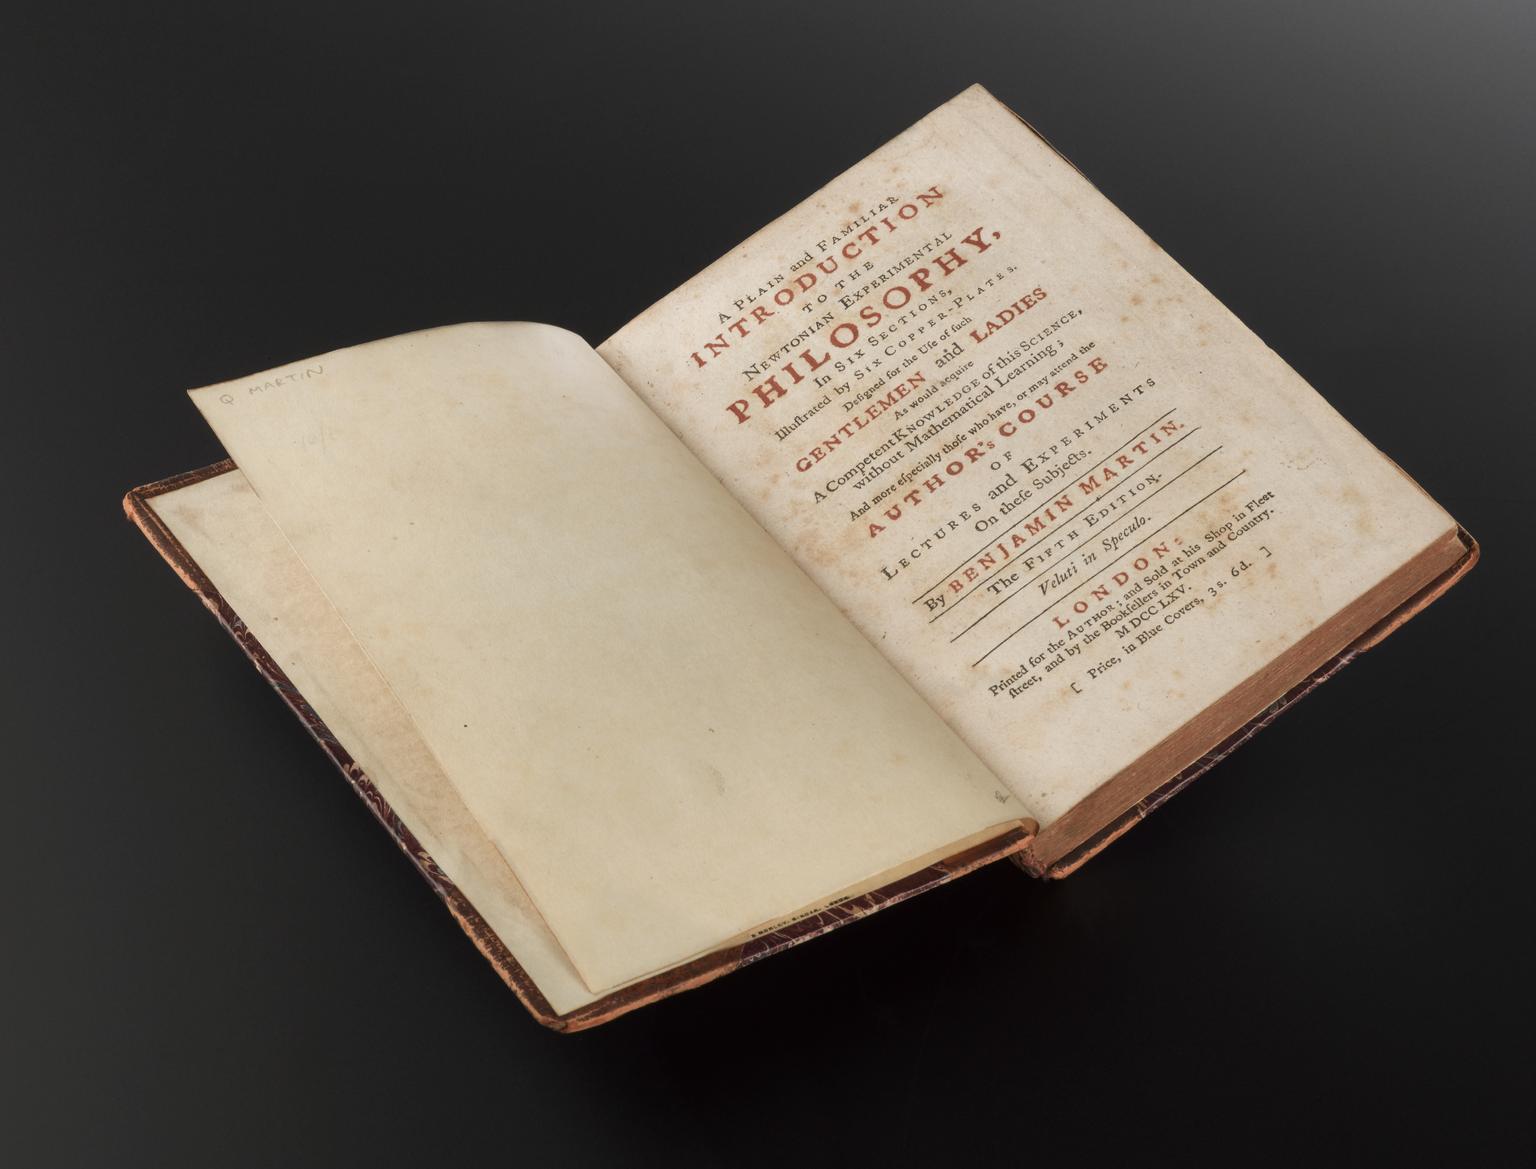 Q MARTIN
A PLAIN and FAMILIAR
INTRODUCTION
TO THE
NEWTONIAN EXPERIMENTAL
PHILOSOPHY,
In SIX SECTIONS,
Illuſtrated by SIX COPPER-PLATES.
Deſigned for the Uſe of ſuch
GENTLEMEN and LADIES
As would acquire
A Competent KNOWLEDGE of this SCIENCE,
without Mathematical Learning;
And more eſpecially thoſe who have, or may attend the
AUTHOR's COURSE
OF
LECTURES and EXPERIMENTS
On theſe Subjects.
By BENJAMIN MARTIN.
The FIFTH EDITION.
Veluti in Speculo.
LONDON:
Printed for the AUTHOR; and Sold at his Shop in Fleet
ſtreet, and by the Bookſellers in Town and Country.
M DCC LXV.
[ Price, in Blue Covers, 3 s. 6 d. ]